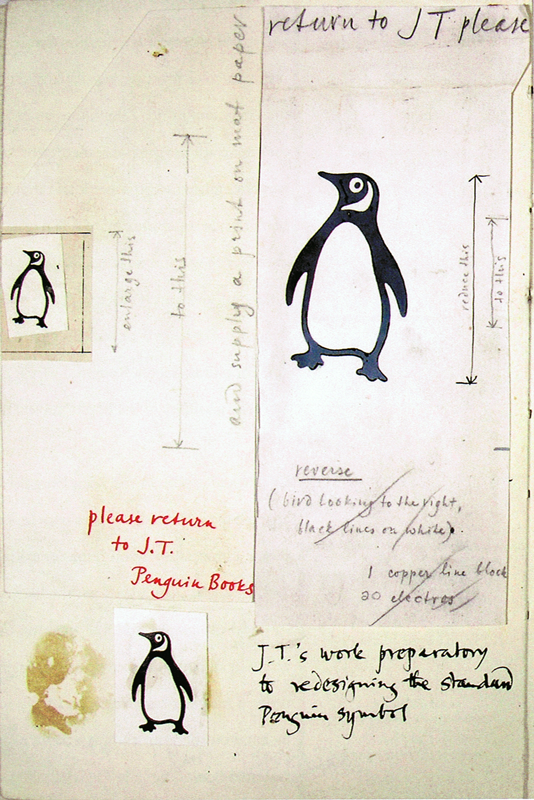 return to J T please
and supply a print on mat paper
enlarge this
to this
reduce this
to this
reverse
(bird looking to the right,
black lines on white).
1 copper line block
20 electros
please return
to J.T.
Penguin Books
J.T.'s work preparatory
to redesigning the standard
Penguin symbol